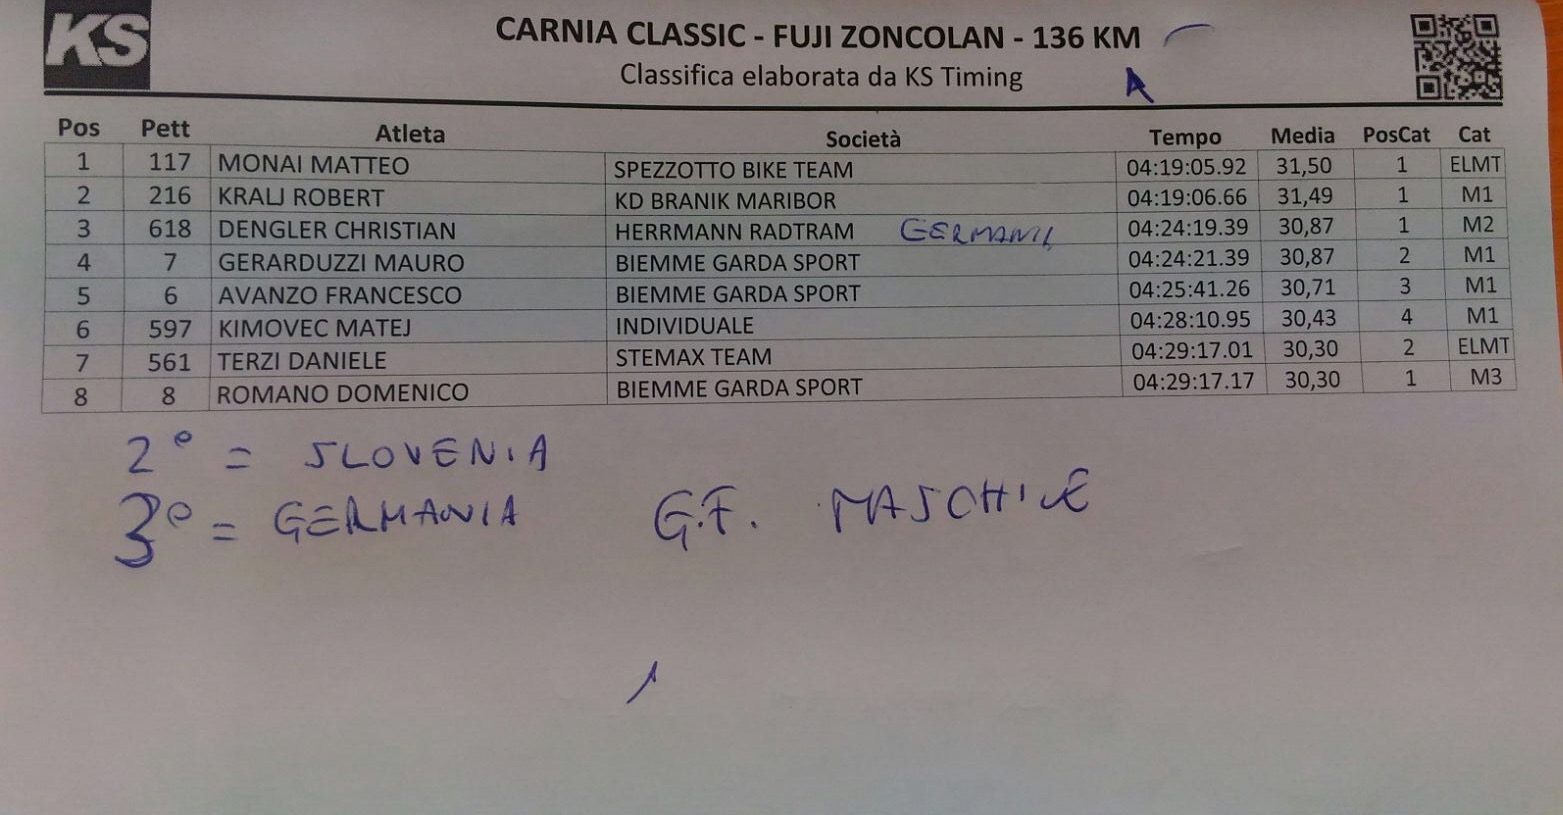 KS
CARNIA CLASSIC - FUJI ZONCOLAN - 136 KM
Classifica elaborata da KS Timing
A
Pos Pett Atleta Società Tempo Media PosCat Cat
1 117 MONAI MATTEO SPEZZOTTO BIKE TEAM 04:19:05.92 31,50 1 ELMT
2 216 KRALJ ROBERT KD BRANIK MARIBOR 04:19:06.66 31,49 1 M1
3 618 DENGLER CHRISTIAN HERRMANN RADTRAM 04:24:19.39 30,87 1 M2
4 7 GERARDUZZI MAURO BIEMME GARDA SPORT 04:24:21.39 30,87 2 M1
5 6 AVANZO FRANCESCO BIEMME GARDA SPORT 04:25:41.26 30,71 3 M1
6 597 KIMOVEC MATEJ INDIVIDUALE 04:28:10.95 30,43 4 M1
7 561 TERZI DANIELE STEMAX TEAM 04:29:17.01 30,30 2 ELMT
8 8 ROMANO DOMENICO BIEMME GARDA SPORT 04:29:17.17 30,30 1 M3
2° = SLOVENIA
3° = GERMANIA G.F. MASCHILE